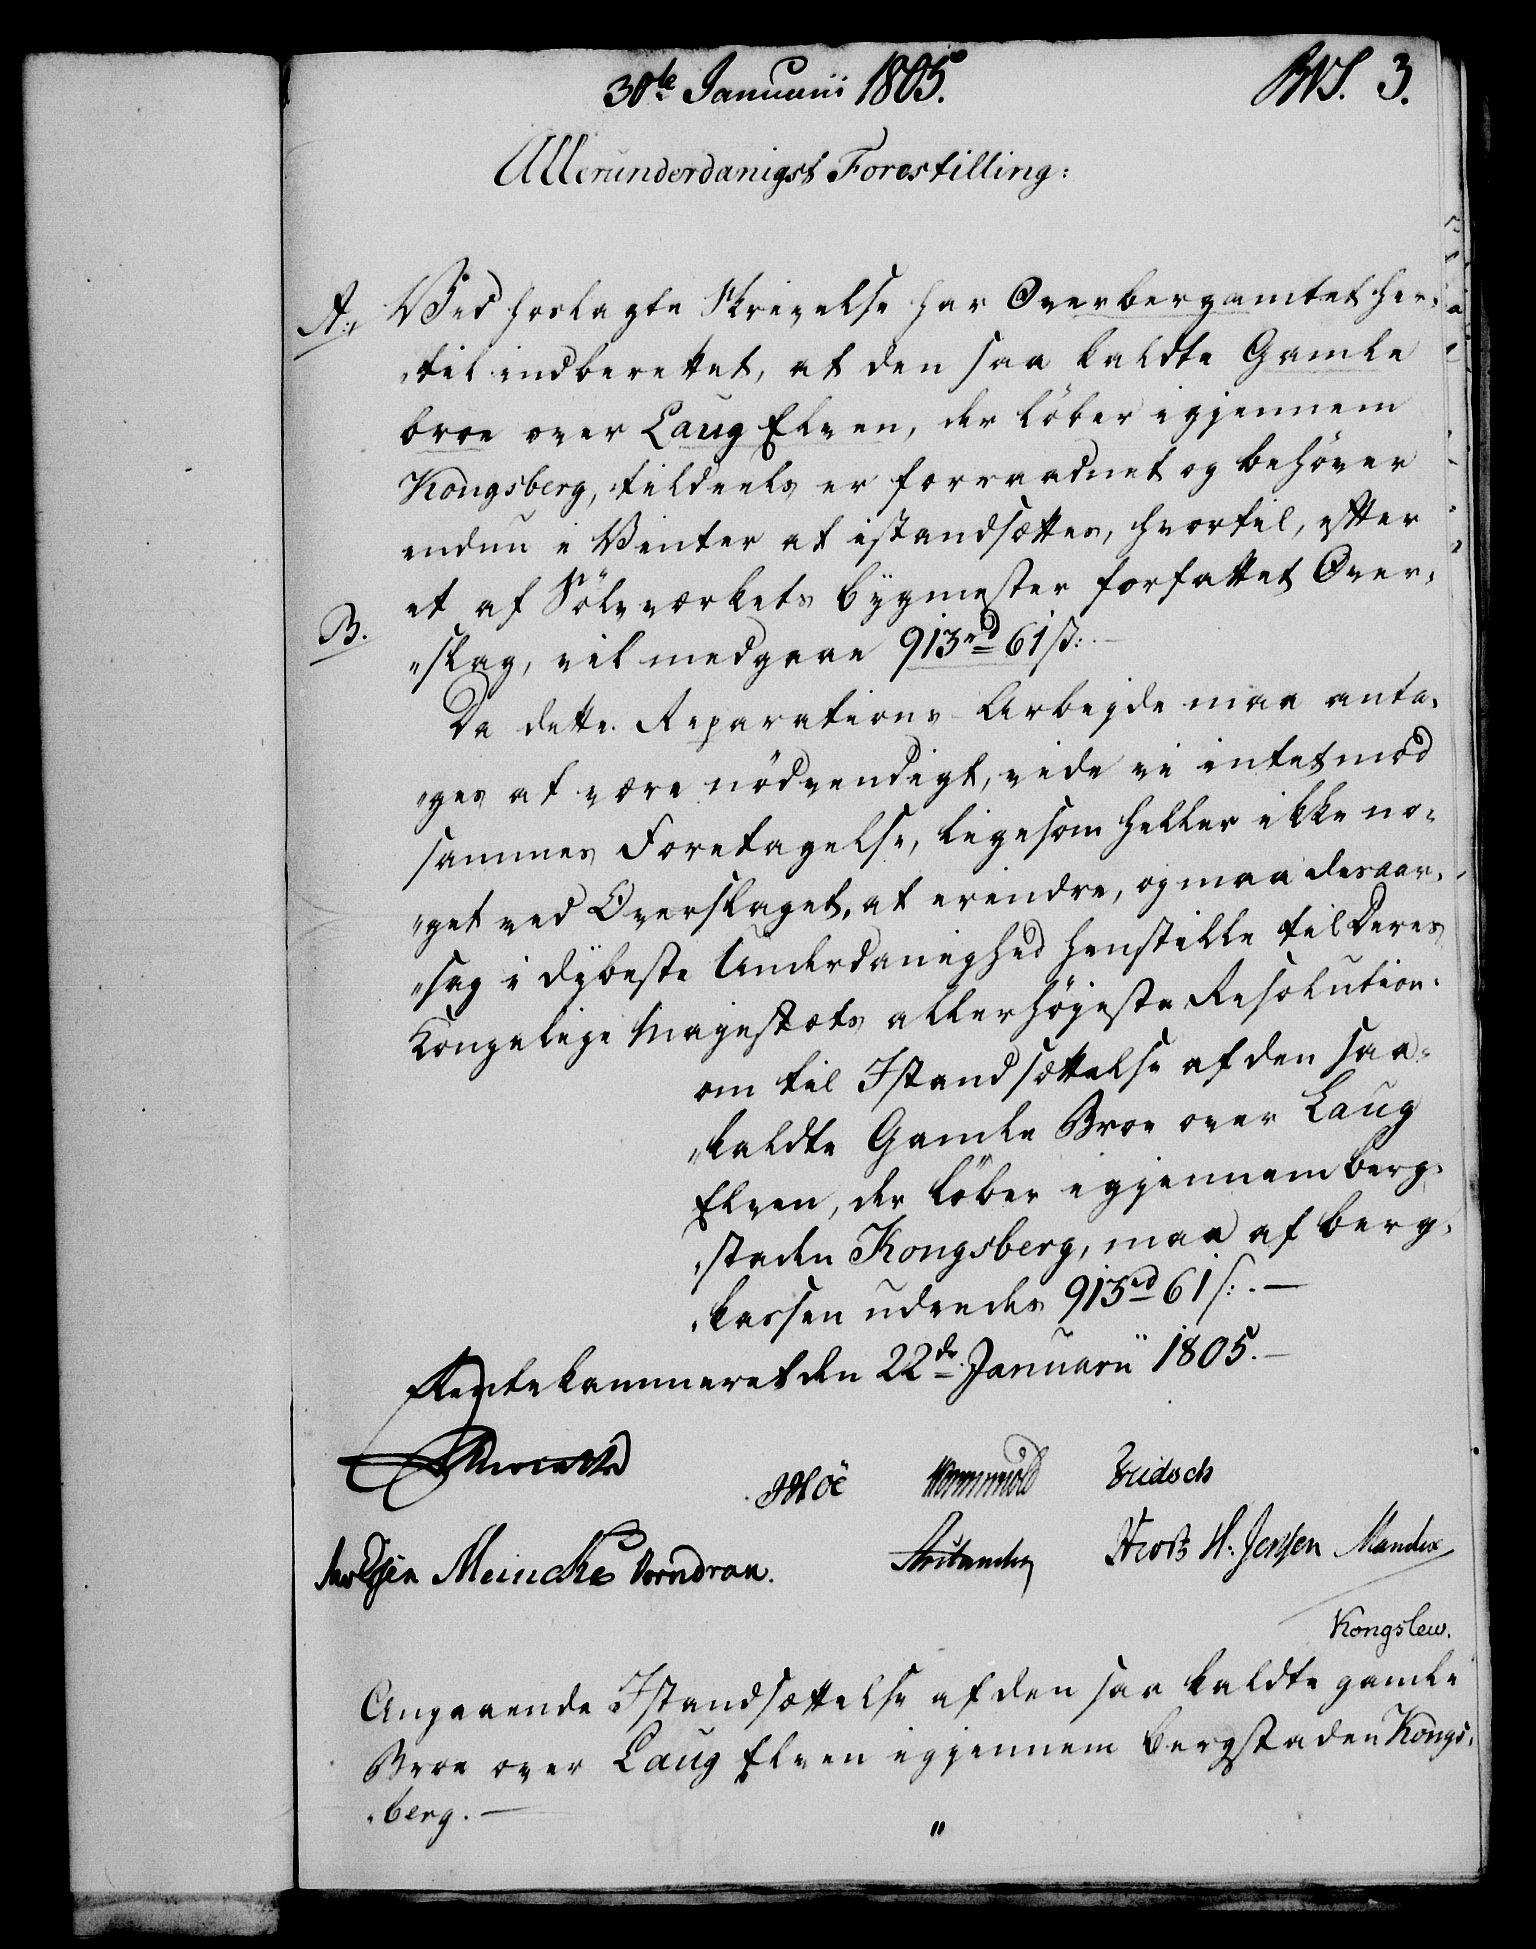 30te Januarii 1805.
No. 3.
Allerunderdanigst Forestilling:
A. Ved hoslagte Skrivelse har Overbergamtet her-
„til indberettet, at den saa kaldte Gamle
broe over Laug Elven, der löber igjennem
Kongsberg, tildeels er forraadnet og behöver
endnu i Vinter at istandsættes, hvortil, efter
et af Sölvværkets bygmester forfattet Over-
B.
„slag, vil medgaae 913rd 61 ß:.—
Da dette Reparations Arbejde maa anta-
„ges at være nödvendigt, vide vi intet mod
sammes Foretagelse, ligesom heller ikke no-
„get ved Overslaget, at erindre, og maa desaar-
„sag i dybeste Underdanighed henstille til Deres
Kongelige Majestæts allerhöjeste Resolution:
om til Istandsættelse af den saa-
„kaldte Gamle Broe over Laug
Elven, der löber igjennem berg-
„staden Kongsberg, maa af berg-
„kassen udredes 913rd 61 ß:.—
Rentekammeret den 22de Januarii 1805.—
Wormskiold
Meincke Vorndran.
H: Jenssen
Kongslew.
Angaaende Istandsættelse af den saa kaldte gamle
Broe over Laug Elven igjennem bergstaden Kongs-
„berg.—
"